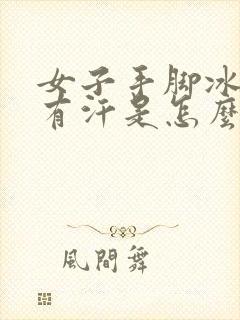 女子手脚冰
有汗是怎麼
風間舞